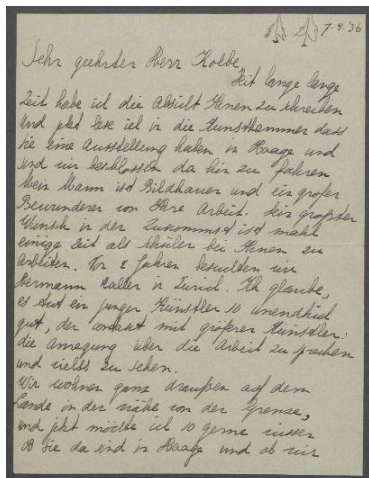 7.4.36
Sehr geehrter Herr Kolbe,
Seit lange lange
Zeit habe ich die Absicht Ihnen zu schreiben
und jetzt lese ich in die Kunstkammer dass
Sie eine Ausstellung haben in Haage und
sind wir beschlossen da hin zu fahren
Mein Mann ist Bildhauer und ein großer
Bewunderer von Ihre Arbeit. Sein größter
Wunsch in der Zukommst ist mahl
einige Zeit als Schüler bei Ihnen zu
arbeiten. Vor 2 Jahren besuchten wir
Hermann Haller in Zürich. Ich glaube,
es tut ein junger Künstler so unendlich
gut, der contakt mit größerer Künstler:
die anregung über die Arbeit zu sprechen
und vieles zu sehen.
Wir wohnen ganz draußen auf dem
Lande in der nähe von der Grense,
und jetzt möchte ich so gerne wissen
ob Sie da sind in Haage und ob wir